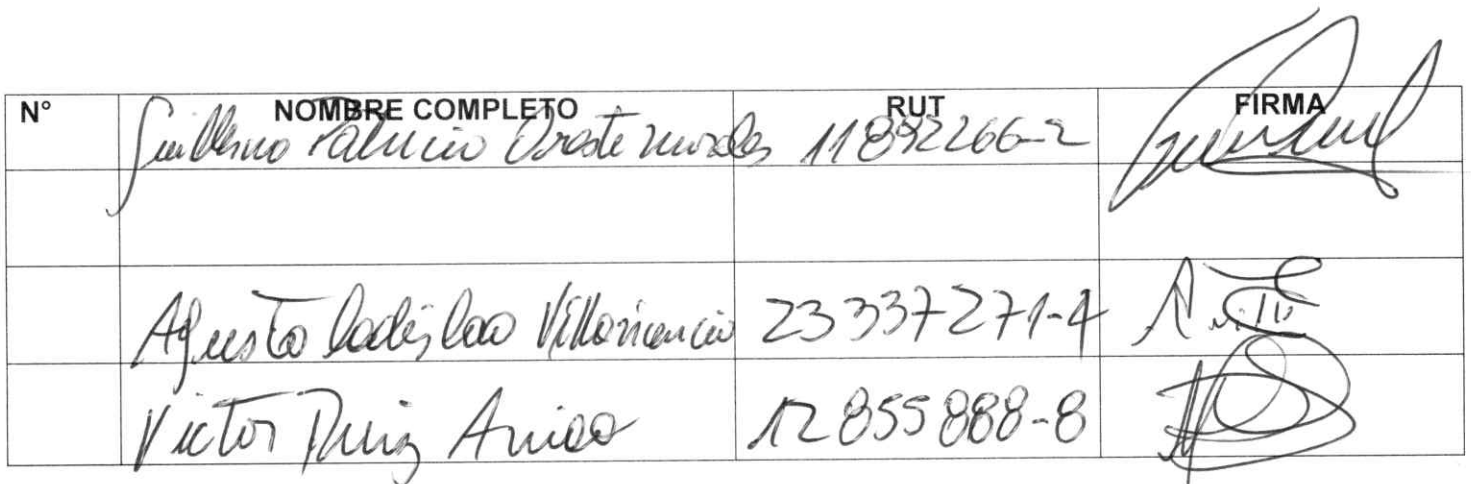 N° NOMBRE COMPLETO RUT FIRMA
Guillermo Patricio Oraste Morales 11892266-2
Agusto Ladislao Villavicencio 23337271-4
Victor Ruiz 12855888-8